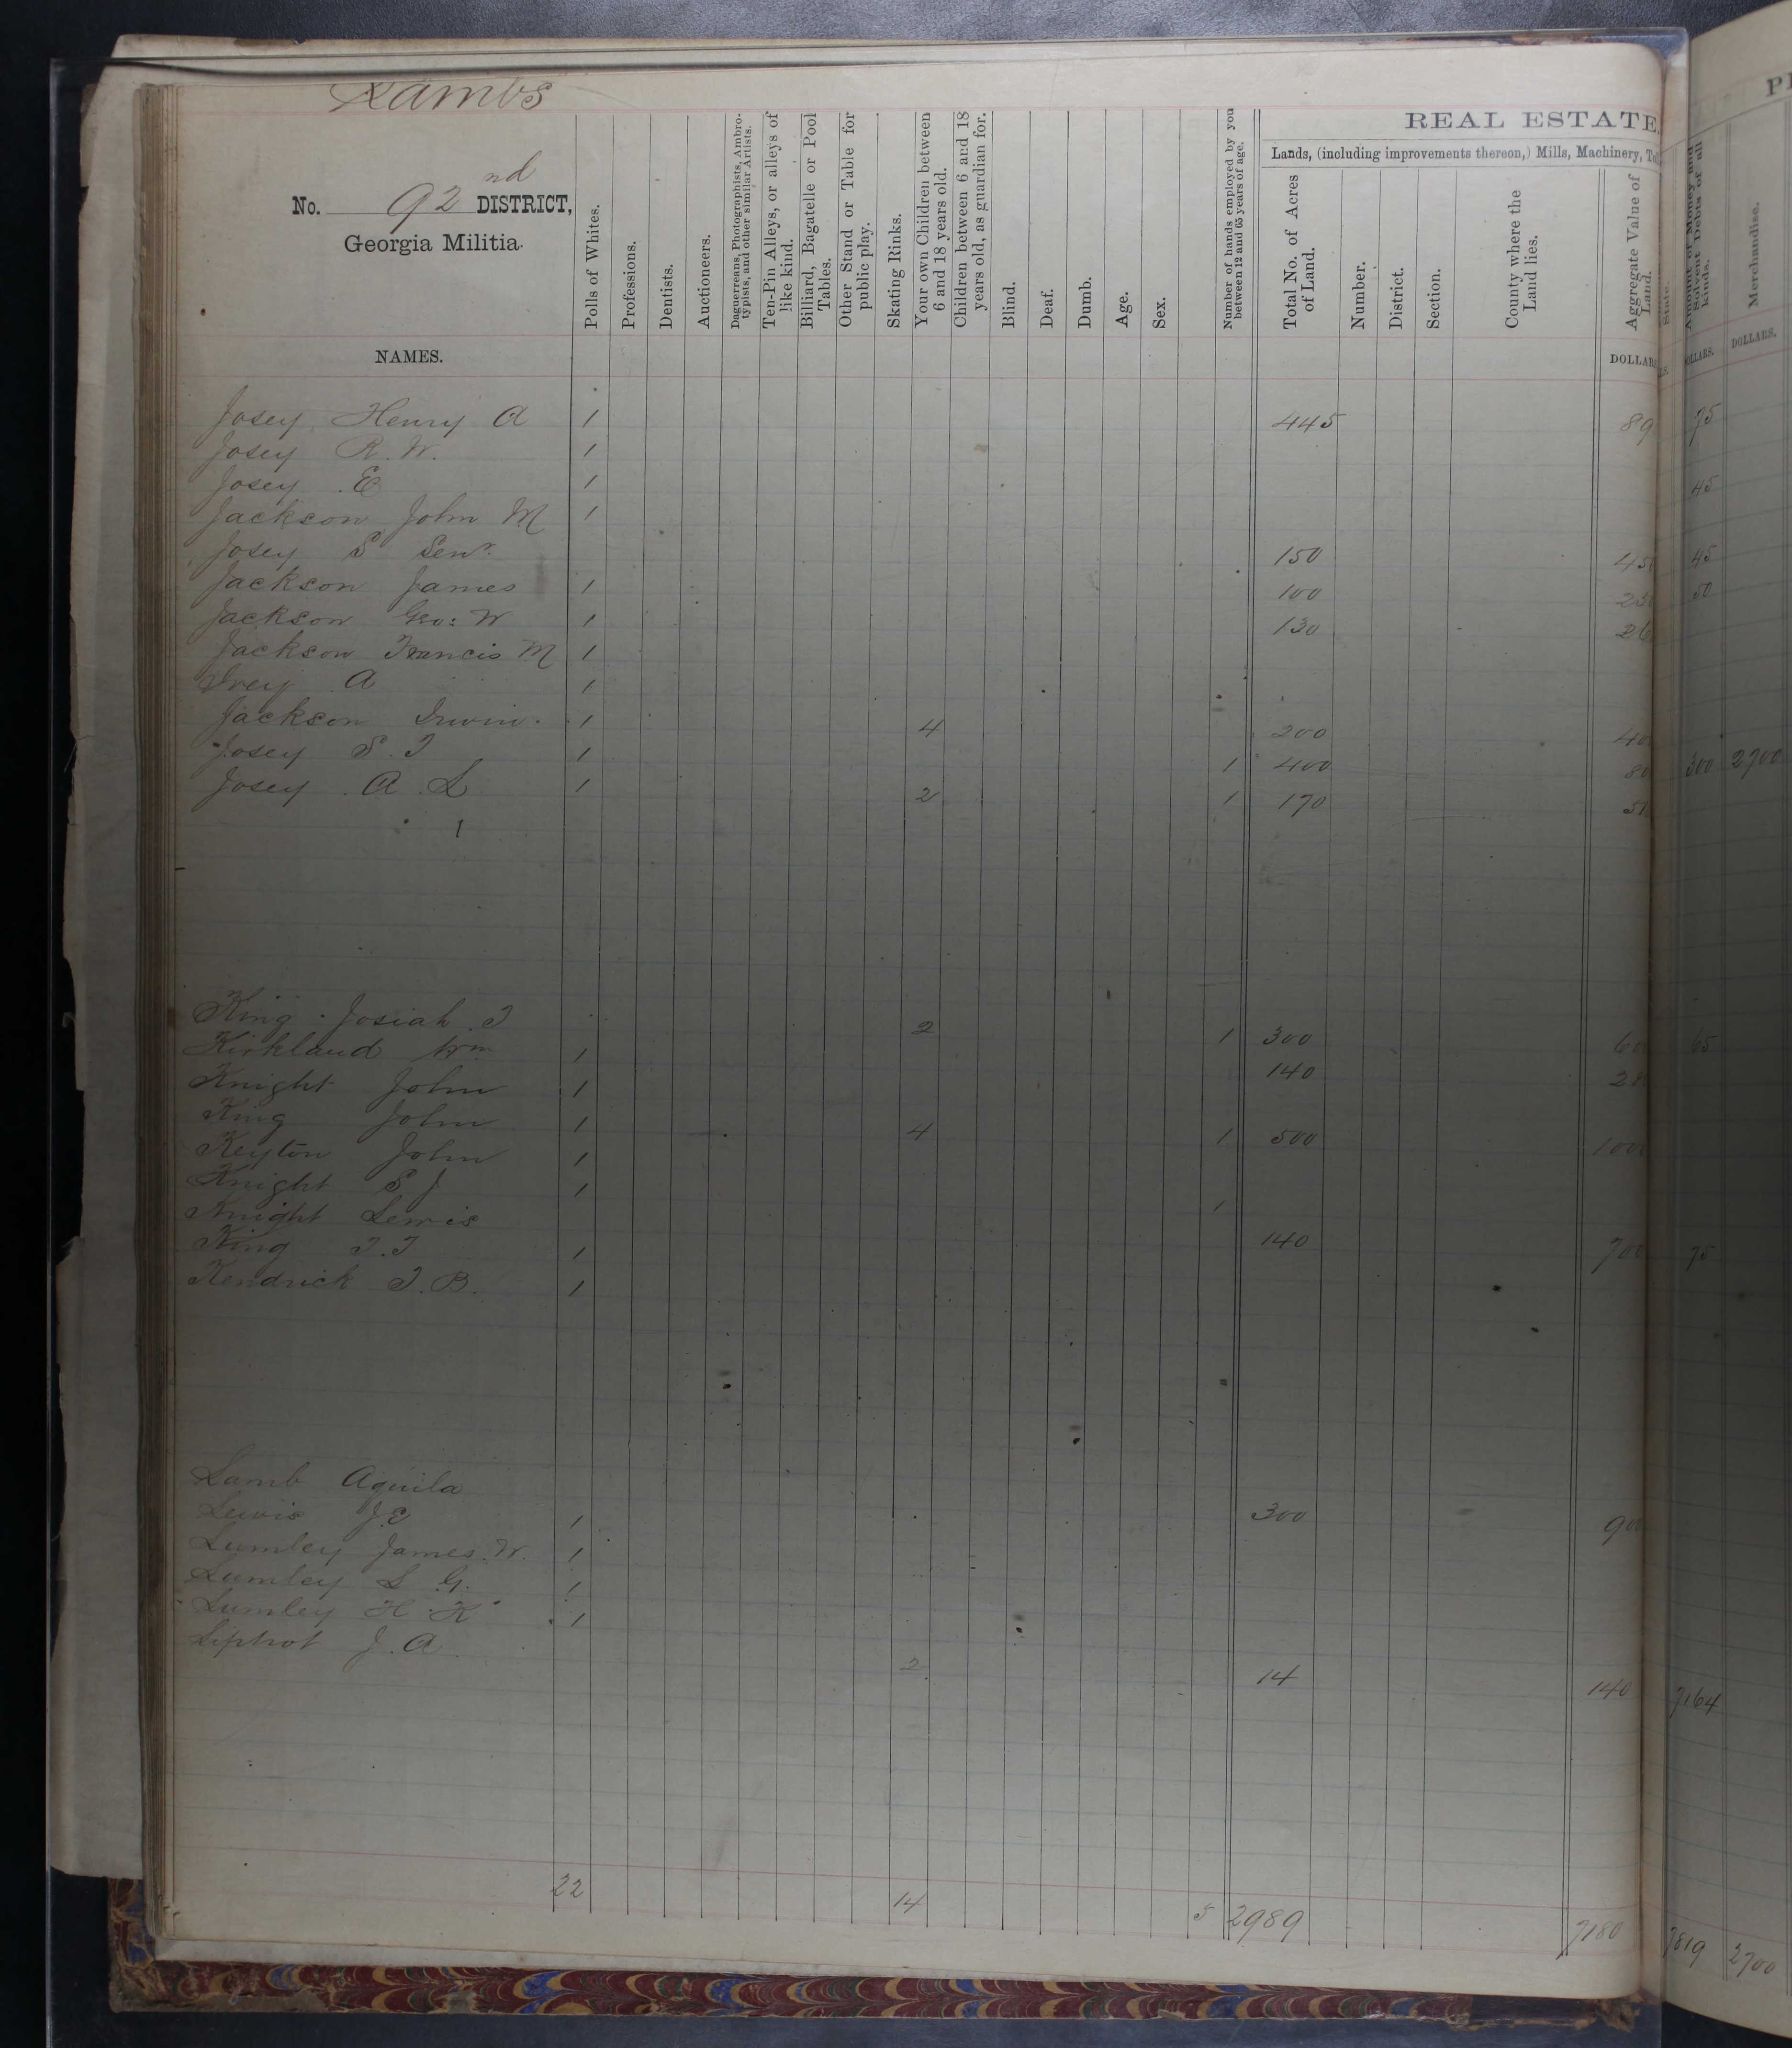 Lambs
No. 92nd DISTRICT,
Georgia Militia.
NAMES.
Polls of Whites.
Professions.
Dentists.
Auctioneers.
Daguerreans, Photographists, Ambrotypists, and other similar Artists.
Ten-Pin Alleys, or alleys of like kind.
Billiard, Bagatelle or Pool Tables.
Other Stand or Table for public play.
Skating Rinks.
Your own Children between 6 and 18 years old.
Children between 6 and 18 years old, as guardian for.
Blind.
Deaf.
Dumb.
Age.
Sex.
Number of hands employed by you between 12 and 65 years of age.
REAL ESTATE.
Lands, (including improvements thereon,) Mills, Machinery,
Total No. of Acres of Land.
Number.
District.
Section.
County where the Land lies.
Aggregate Value of Land.
DOLLARS
Amount of Money and Solvent Debts of all kinds.
Merchandise.
DOLLARS. DOLLARS.
Josey Henry A 1 445 89 75
Josey R. W. 1
Josey E 1 45
Jackson John M 1
Josey S Senr. 150 45 45
Jackson James 1 100 25 50
Jackson Geo: W 1 130 26
Jackson Francis M 1
Ivey A 1
Jackson Irwin 1 4 200 40
Josey S. T 1 1 400 80 300 2700
Josey A. L 1 2 1 170 51
1
King Josiah T 2 1 300 60 65
Kirkland Wm 1 140 28
Knight John 1
King John 1 4 1 500 1000
Keyton John 1
Knight S J 1
Knight Lewis 1
King T. T 1 140 700 75
Kendrick T. B. 1
Lamb Aquila
Lewis J. E 1 300 900
Lumley James. W. 1
Lumley L G. 1
Lumley H K 1
Liptrot J. A 2 14 140 7164
22 14 5 2989 7180 7819 2700